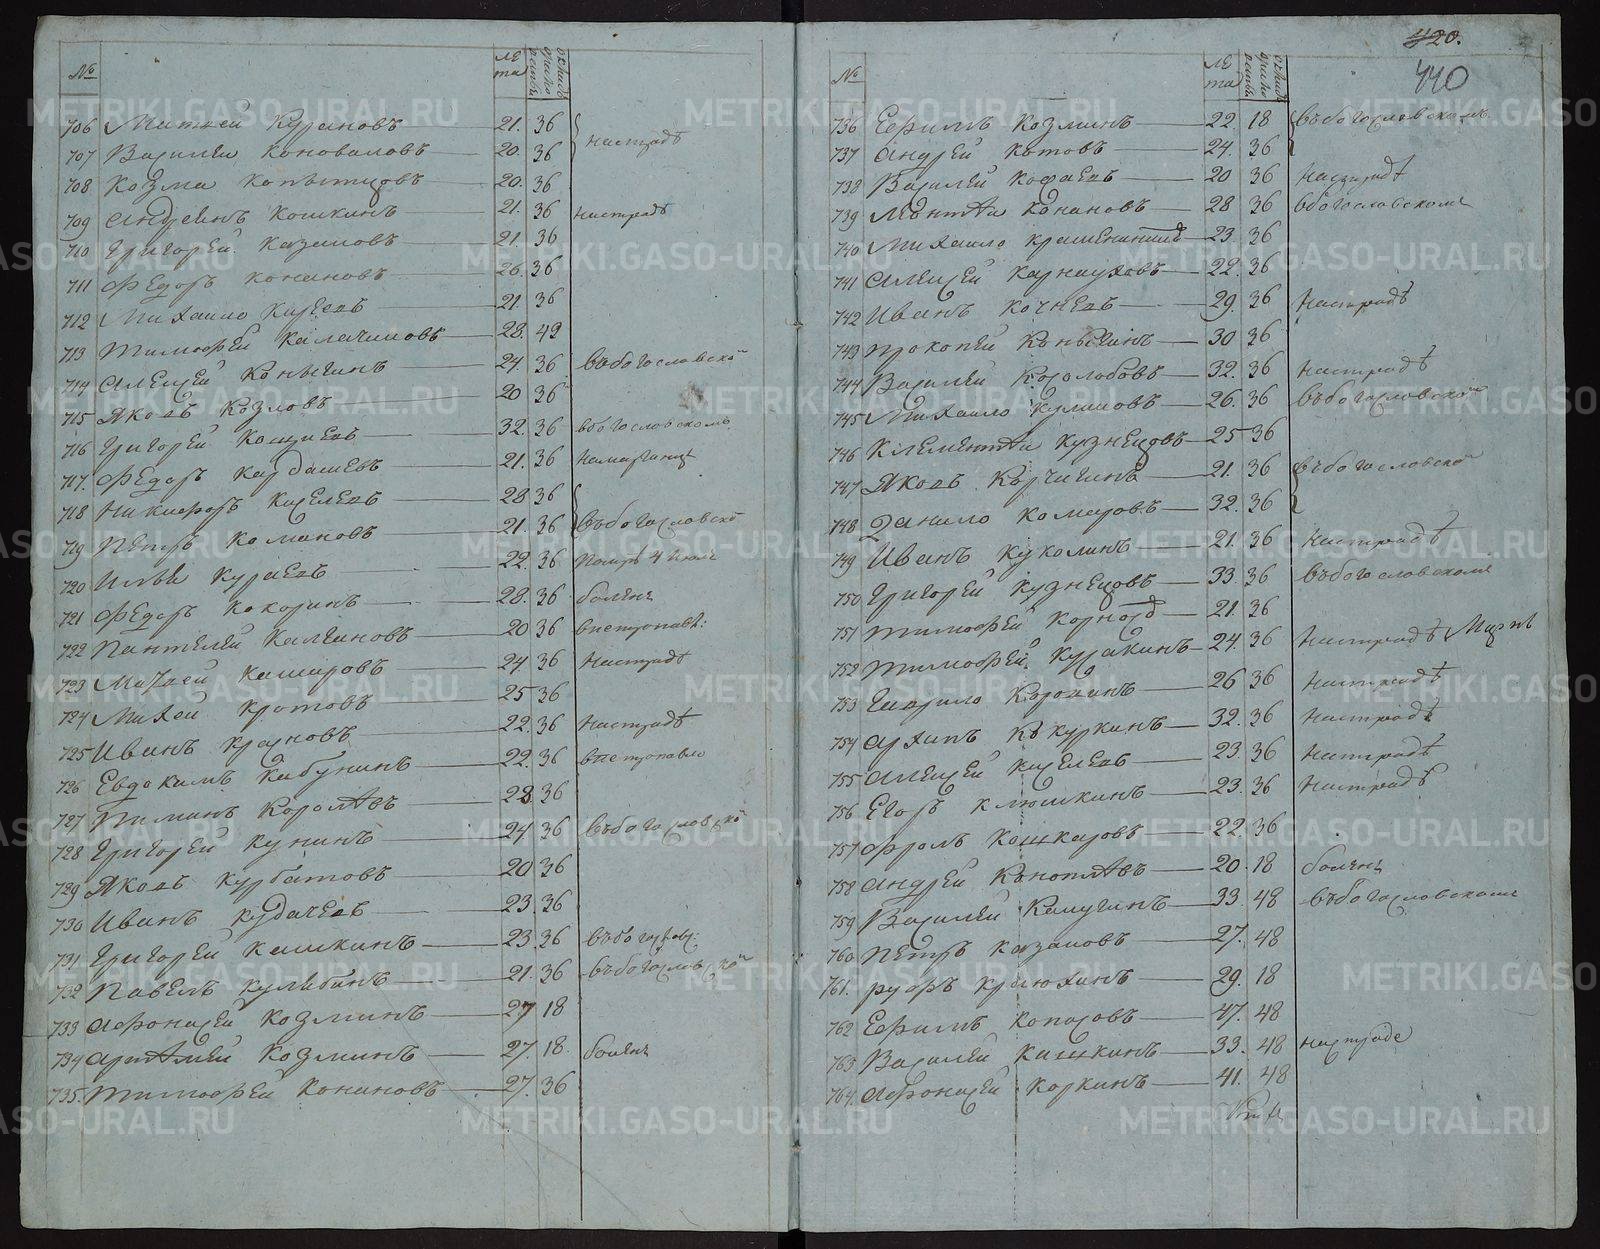 № лѣта
706 Матвей Кузановъ 21. 36
707 Василей Коноваловъ 20. 36 настрадѣ
708 Козма Копытцовъ 20. 36
709 Андреянъ Кошкинъ 21. 36 настрадѣ
710 Григорей Казаковъ 21. 36
711 Федоръ Конановъ 26. 36
712 Михайло Киселевъ 21 36
713 Тимофей Калачиковъ 28. 42
714 Алексей Коныгинъ 24. 36 въбогословско
715 Яковъ Козловъ 20 36
716 Григорей 32. 36 вбогословскомъ
717. Федоръ Кардашевъ 21. 36
718 Никифоръ Киселевъ 28 36
719 Петръ Комановъ 21. 36 въбогословско
720 Илья Кураевъ 22. 36 Померъ 4 июля
721 Федоръ Кокоринъ 28. 36 боленъ
722 Пантелей Калининовъ 20 36 впетропавл:
723 Матвей Кашировъ 24 36 настрадѣ
724 Михей Кротовъ 25 36
725 Иванъ Красновъ 22. 36 настрадѣ
726 Евдокимъ Кабунинъ 22. 36 впетропавло
727 Пиминъ Королѣвъ 28 36
728 Григорей Кунинъ 24 36 въбогословско
729 Яковъ Курбатовъ 20 36
730 Иванъ Кудачевъ 23. 36
731 Григорей Кашкинъ 23. 36 въбогослов:
732 Павелъ Кулибинъ 21. 36 въбогословской
733 Афонасей Козминъ 27 18
734 Артѣмей Козминъ 27. 18. боленъ
735. Тимофей Конановъ 27. 36
420.
440
№ лѣта
736 Ефимъ Козминъ 22. 18 въбогословскомъ
737 Андрей Котовъ 24. 36
738 Василей Кофаевъ 20 36 настрадѣ
739 Леонтѣй Конановъ 28 36 вбогословскомъ
740 Михайло Крашенининъ 23. 36
741 Алексей Карнауховъ 22. 36
742 Иванъ Кочневъ 29. 36 настрадѣ
743 Прокопей Коныгинъ 30 36
744 Василей Косолобовъ 32. 36 настрадѣ
745 Михайло Куликовъ 26. 36 въбогословской
746 Клементѣй Кузнецовъ 25 36
747 Яковъ Корчагинъ 21. 36 въбогословско
748 Данило Комаровъ 32. 36
749 Иванъ Куколинъ 21. 36 настрадѣ
750 Григорей Кузнецовъ 33. 36 въбогословскомъ
751 Тимофей 21. 36
752 Тимофей Куракинъ 24. 36 настрадѣ
753 Гаврило 26 36 настрадѣ
754 Архипъ Кокуркинъ 32. 36 настрадѣ
755 Алексей Киселевъ 23. 36 настрадѣ
756 Егоръ Клюшкинъ 23. 36 настрадѣ
757 Фролъ Кашкаровъ 22. 36
758 Андрей Коноплѣвъ 20. 18 боленъ
759 Василей Калугинъ 33. 48 въбогословскомъ
760 Петръ Казаковъ 27. 48
761. Крюхинъ 29. 18
762 Ефимъ Копосовъ 47. 48
763 Василей Кашкинъ 33. 48 настраде
764. Афонасей Коркинъ 41. 48
METRIKI.GASO-URAL.RU